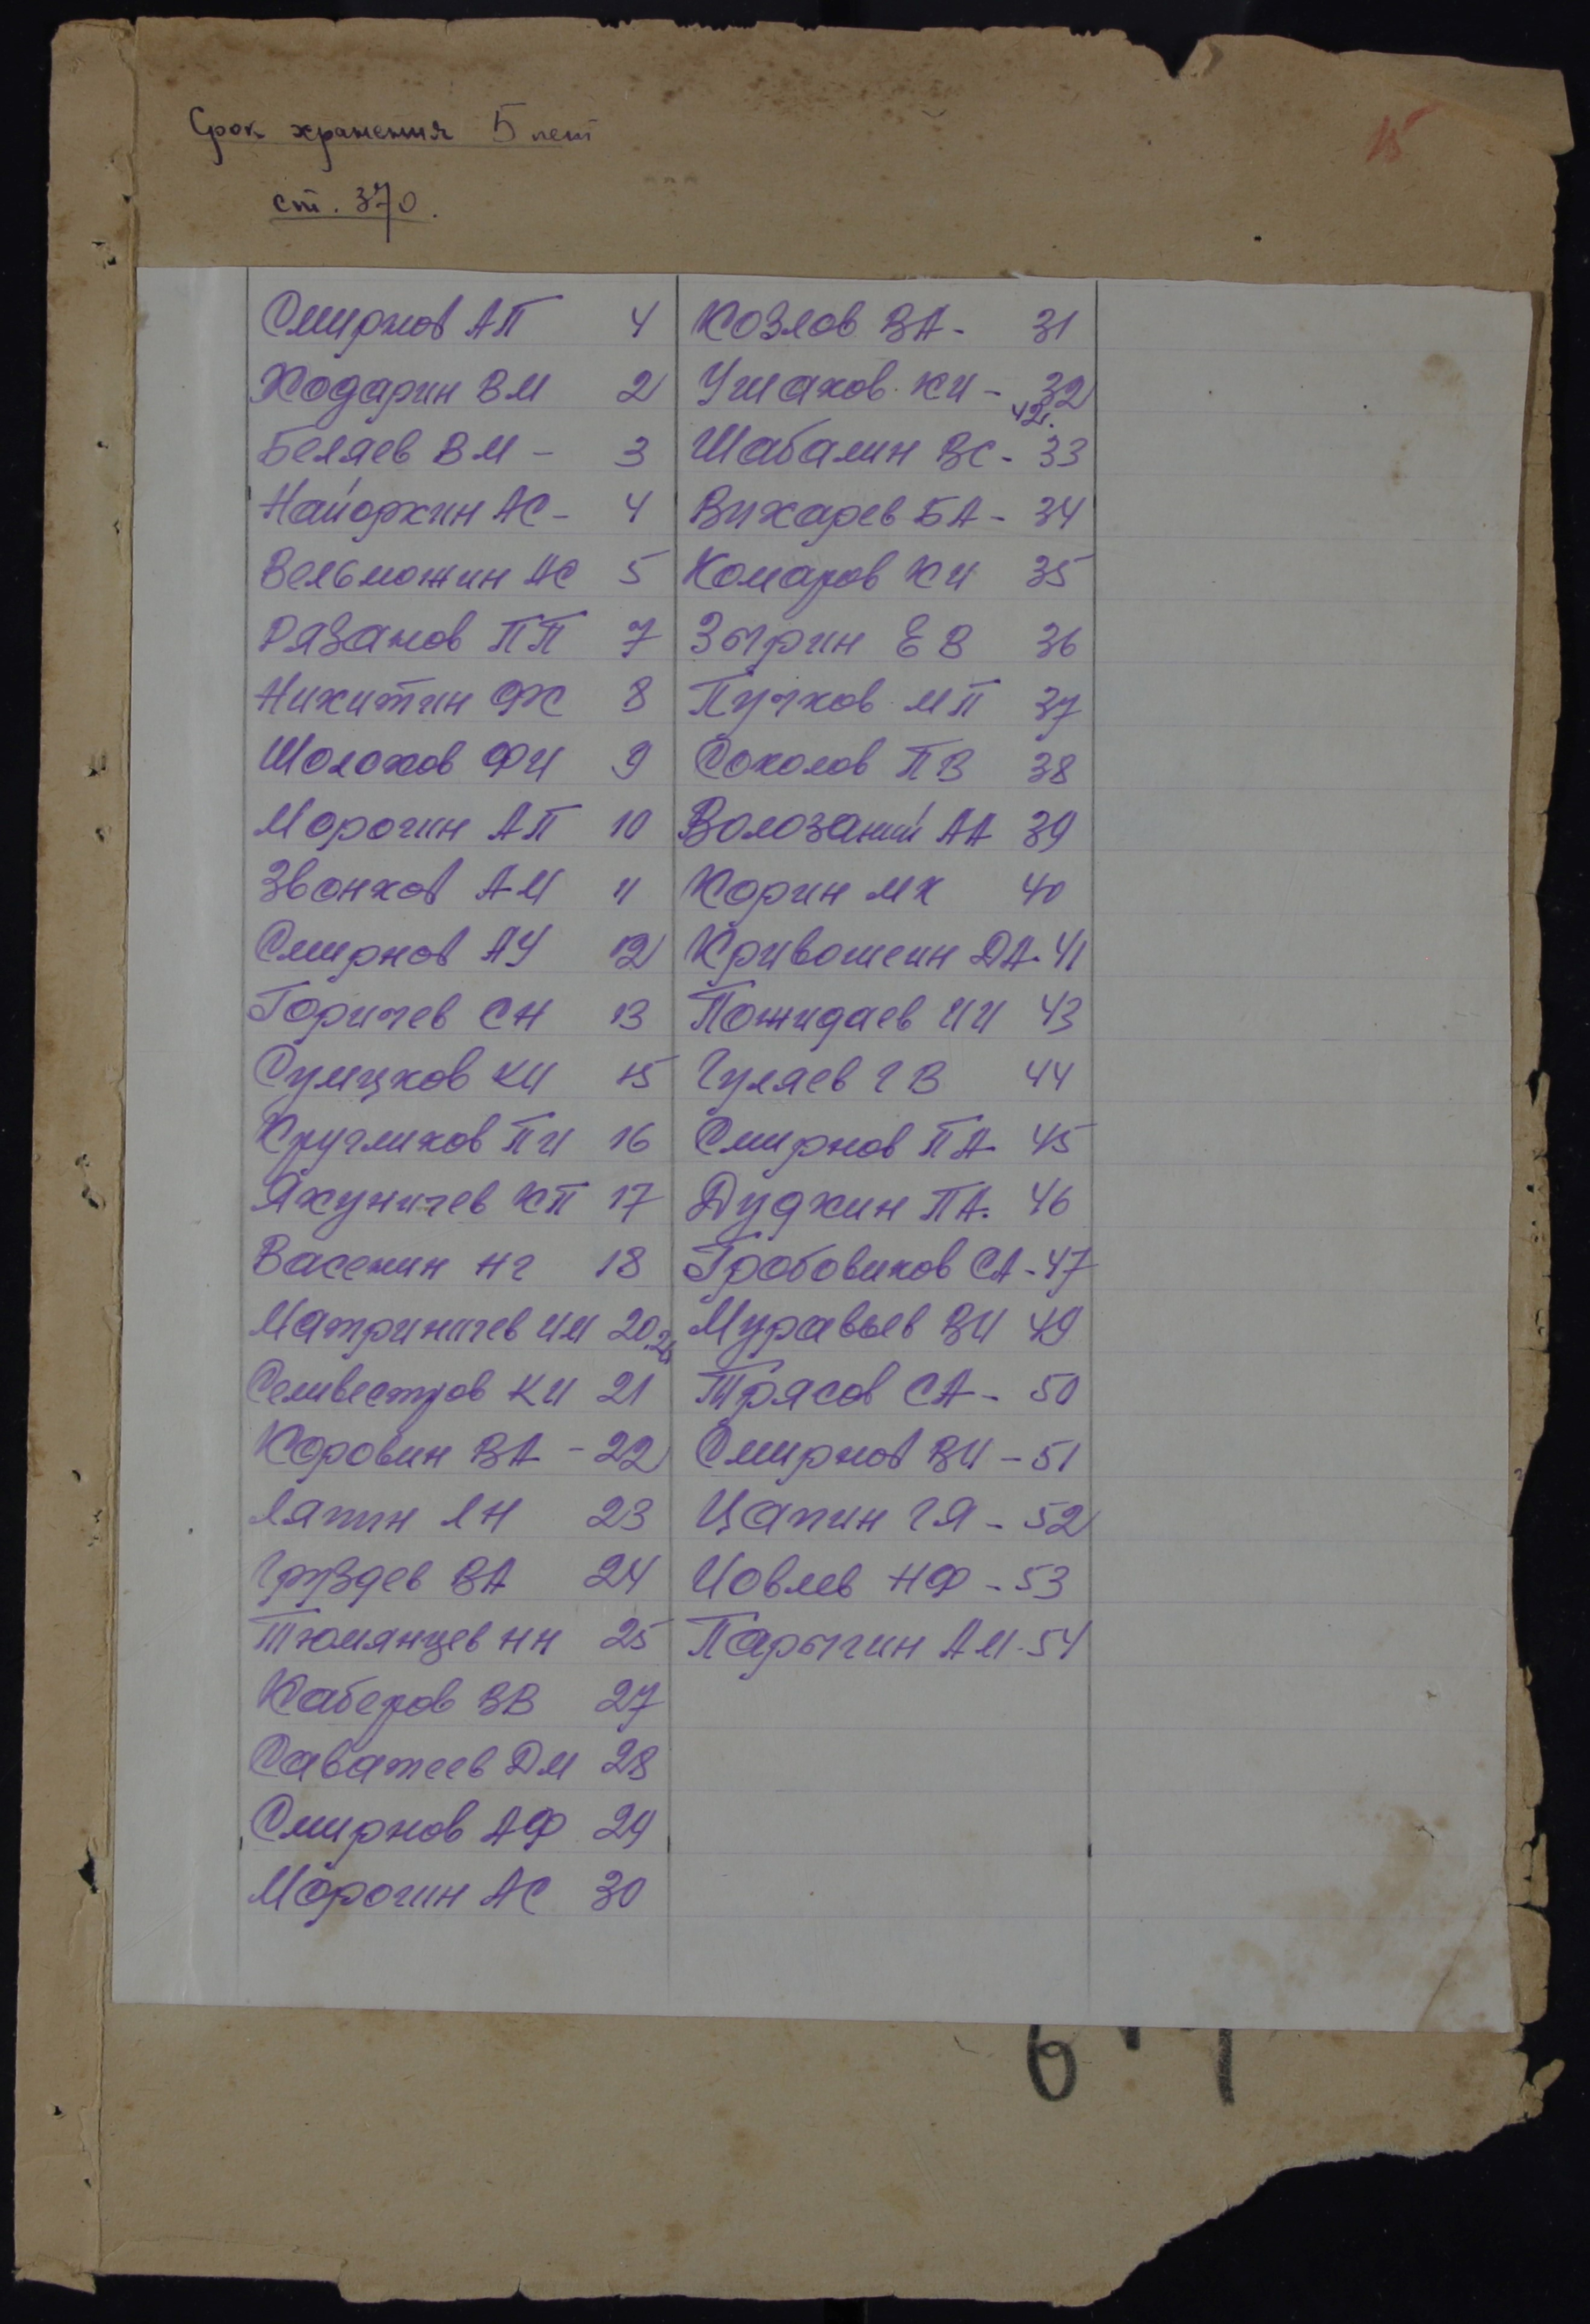 Срок хранения 5 лет
15
ст. 370.
Смирнов АП 4
Ходарин ВМ 2
Беляев ВМ - 3
Найоркин АС - 4
Вельможин АС 5
Рязанов ПП 7
Никитин ФК 8
Шолохов ФИ 9
Морогин АП 10
Звонков АМ 11
Смирнов АУ 12
Горичев СН 13
Сумцков КИ 15
Кругликов ПИ 16
Якуничев КП 17
Васенин НГ 18
Матриничев ИМ 20.26
Селивестров КИ 21
Коровин ВА - 22
Ляпин ЛН 23
Груздев ВА 24
Тюмянцев НН 25
Каберов ВВ 27
Саватеев ДМ 28
Смирнов АФ 29
Морогин АС 30
Козлов ВА - 31
Ушаков КИ - 32
42.
Шабалин ВС - 33
Вихарев БА - 34
Комаров КИ 35
Зырин ЕВ 36
Пучков МП 37
Соколов ПВ 38
Волозаний АА 39
Корин МК 40
Кривошеин ДА - 41
Пожидаев ИИ 43
Гуляев ГВ 44
Смирнов ПА 45
Дудкин ПА. 46
Гробовиков СА - 47
Муравьев ВИ 49
Трясов СА - 50
Смирнов ВИ - 51
Цапин ГЯ - 52
Иовлев НФ - 53
Парыгин АМ - 54